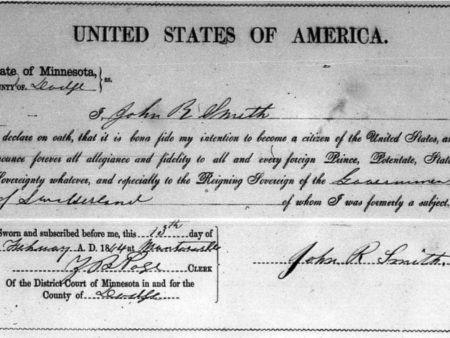 UNITED STATES OF AMERICA.
ate of Minnesota,
OUNTY OF Dodge } ss.
I, John R Smith
declare on oath, that it is bona fide my intention to become a citizen of the United States, an
ounce forever all allegiance and fidelity to all and every foreign Prince, Potentate, Stat
Sovereignty whatever, and especially to the Reigning Sovereign of the Governmen
of Switzerland of whom I was formerly a subject.
Sworn and subscribed before me, this 13th day of
February A. D. 1864 at Mantorville
CLERK
Of the District Court of Minnesota in and for the
County of Dodge
John R Smith.